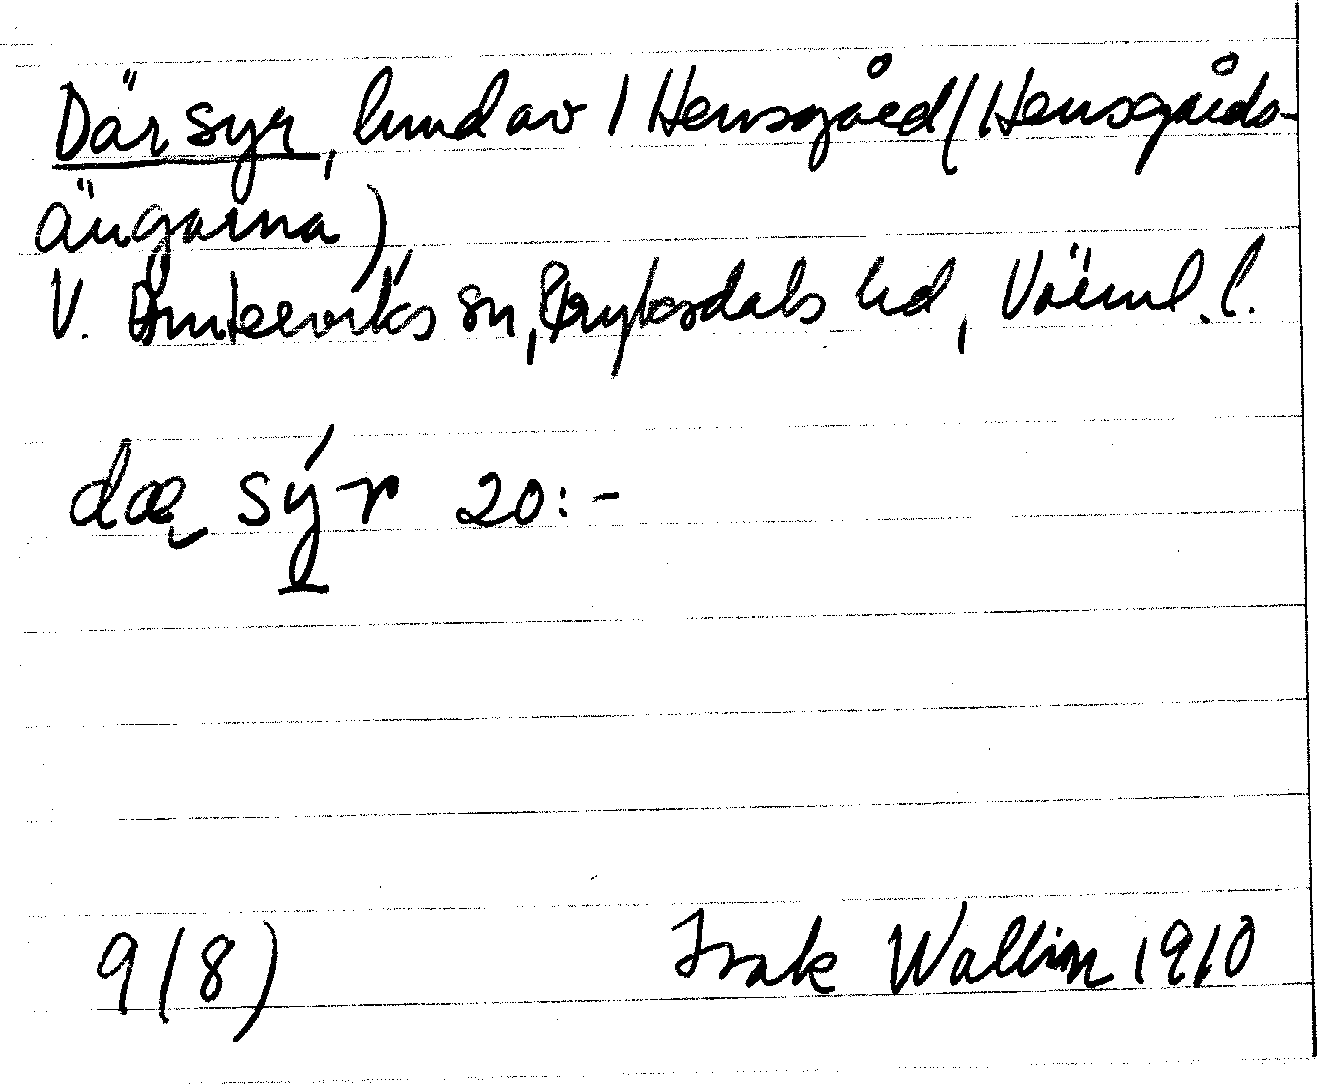 Där syr, hmd av 1 Hensgård (Hensgårds-
ängarna)
V. Ämterviks sn, Fryksdals hd, Värml. l.
dæ sýr 20:-
9(8) Isak Wallin 1910